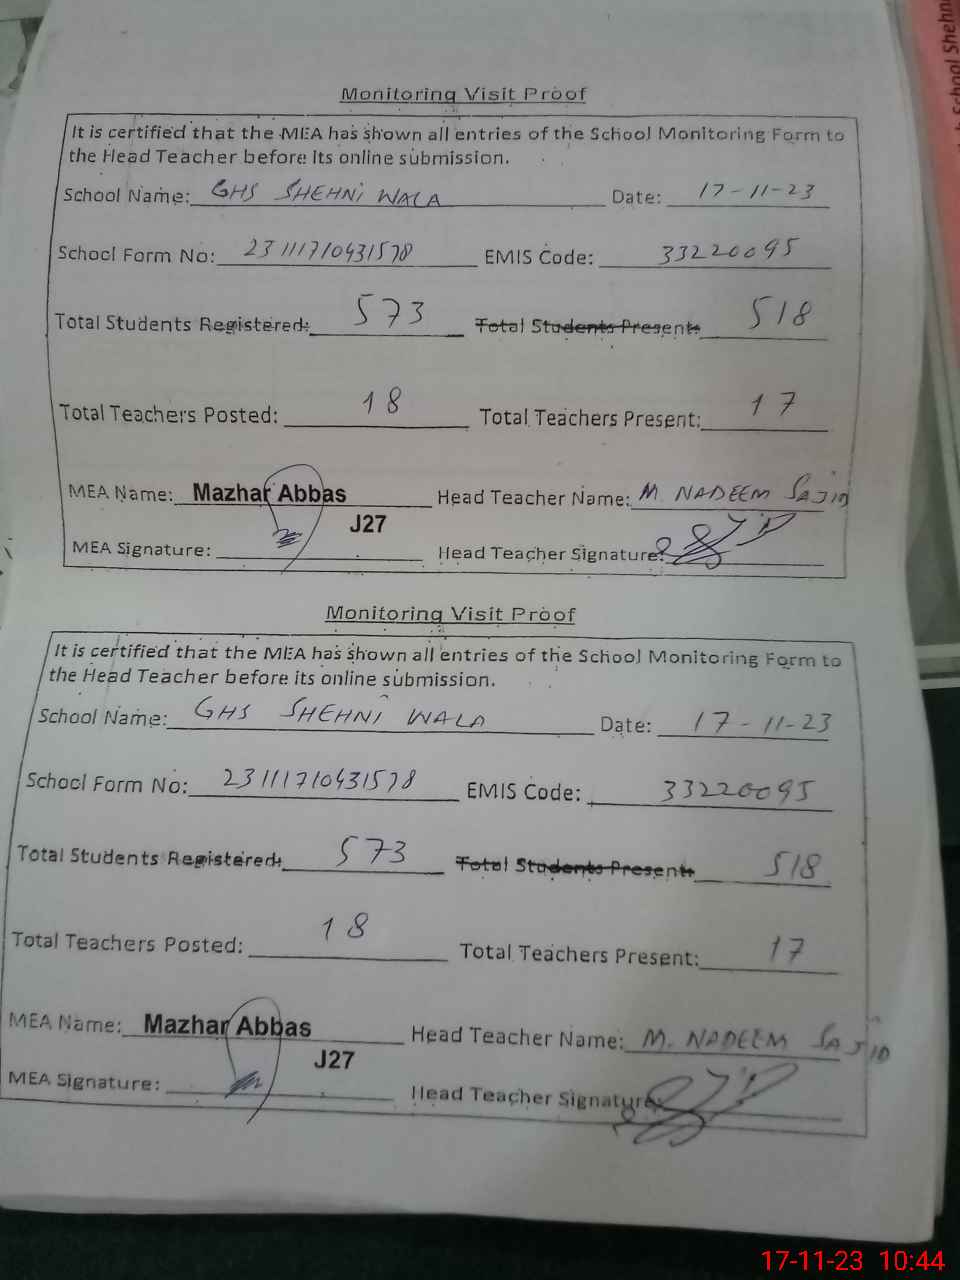 Monitoring Visit Proof
It is certified that the MEA has shown all entries of the School Monitoring Form to
the Head Teacher before its online submission.
School Name: GHS SHEHNI WALA Date: 17-11-23
School Form No: 23111710431578 EMIS Code: 33220095
Total Students Registered: 573 Total Students Present: 518
Total Teachers Posted: 18 Total Teachers Present: 17
MEA Name: Mazhar Abbas Head Teacher Name: M. NADEEM SAJID
J27
MEA Signature: Head Teacher Signature:
Monitoring Visit Proof
It is certified that the MEA has shown all entries of the School Monitoring Form to
the Head Teacher before its online submission.
School Name: GHS SHEHNI WALA Date: 17-11-23
School Form No: 23111710431578 EMIS Code: 33220095
Total Students Registered: 573 Total Students Present: 518
Total Teachers Posted: 18 Total Teachers Present: 17
MEA Name: Mazhar Abbas Head Teacher Name: M. NADEEM SAJID
J27
MEA Signature: Head Teacher Signature:
School Shehni
17-11-23 10:44